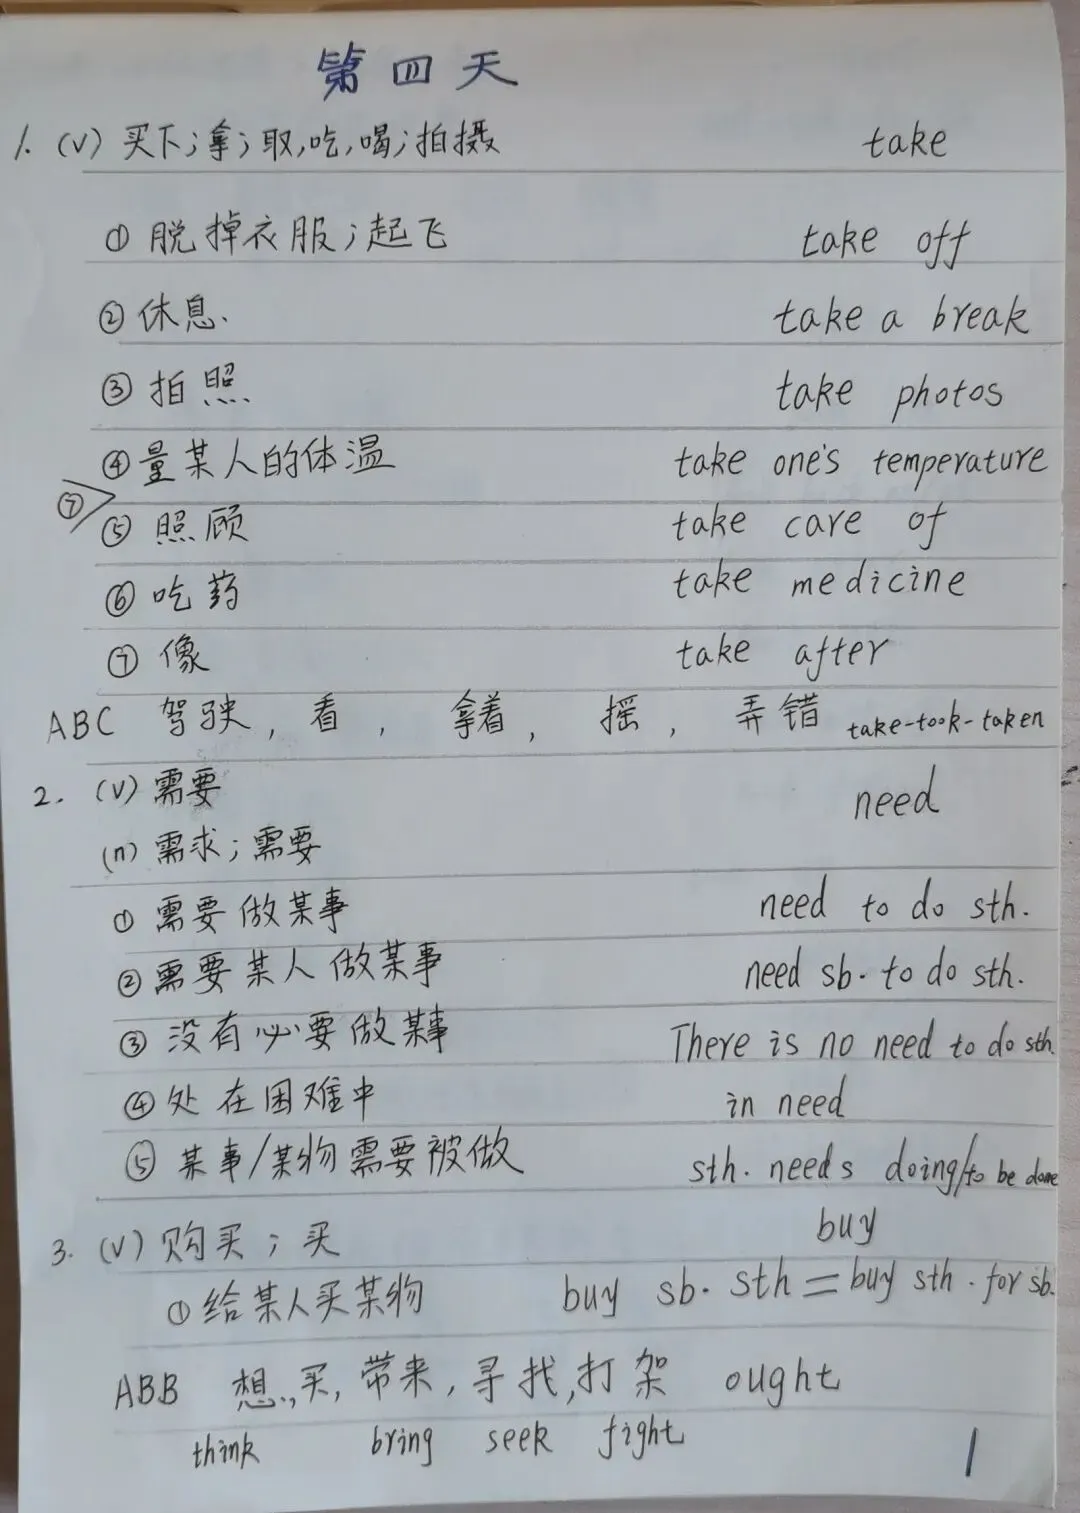 第四天
1. (v) 买下；拿；取，吃，喝；拍摄 take
① 脱掉衣服；起飞 take off
② 休息. take a break
③ 拍照 take photos
④ 量某人的体温 take one's temperature
⑦>
⑤ 照顾 take care of
⑥ 吃药 take medicine
⑦ 像 take after
ABC 驾驶，看，拿着，摇，弄错 take-took-taken
2. (v) 需要 need
(n) 需求；需要
① 需要做某事 need to do sth.
② 需要某人做某事 need sb. to do sth.
③ 没有必要做某事 There is no need to do sth.
④ 处在困难中 in need
⑤ 某事/某物需要被做 sth. needs doing/to be done
3. (v) 购买；买 buy
① 给某人买某物 buy sb. sth = buy sth. for sb.
ABB 想，买，带来，寻找，打架 ought
think bring seek fight
1